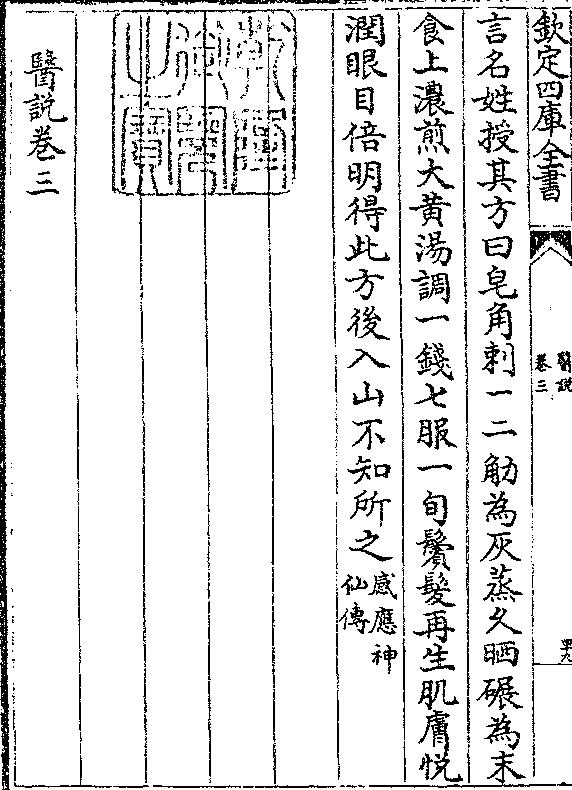 欽定四庫全書
醫說
卷三
言名姓授其方曰皂角刺一二觔為灰蒸久晒碾為末
食上濃煎大黄湯調一錢七服一旬鬢髮再生肌膚悅
潤眼目倍明得此方後入山不知所之感應神
仙傳
乾隆
御覽
之寶
醫說卷三